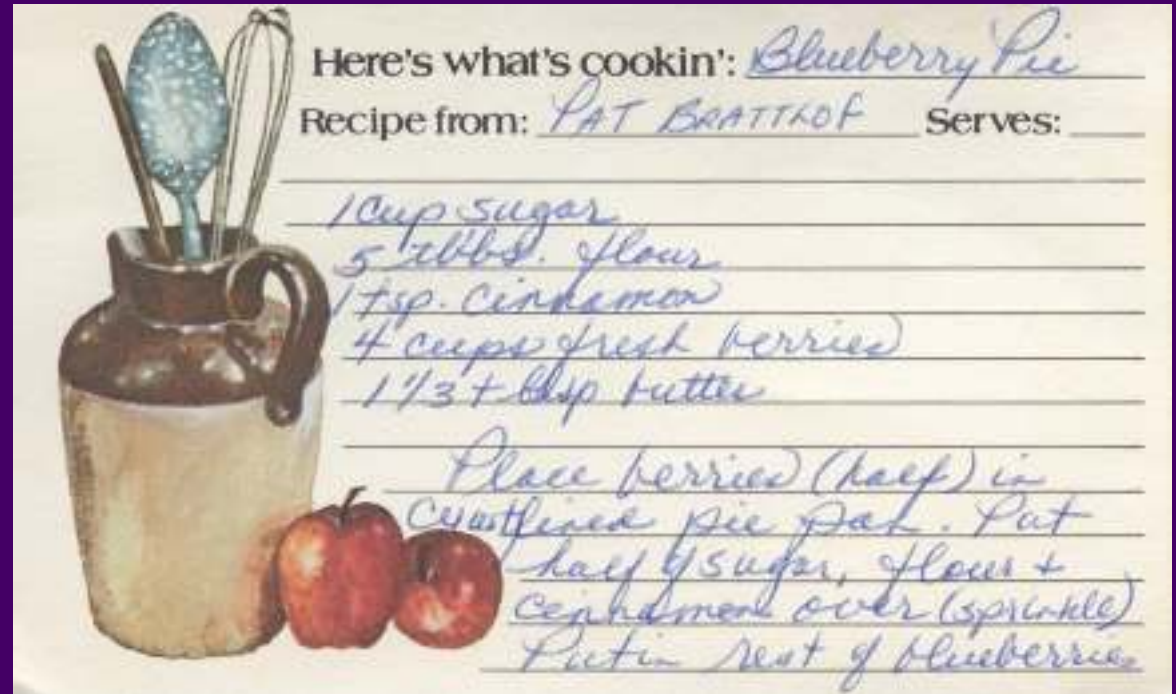 Here's what's cookin': Blueberry Pie
Recipe from: PAT BRATTLOF Serves:
1 Cup sugar
5 tbbs. flour
1 tsp. cinnamon
4 cups fresh berries
1 1/3 tbsp butter
Place berries (half) in
crust lined pie pan. Put
half of sugar, flour +
cinnamon over (sprinkle)
Put in rest of blueberries